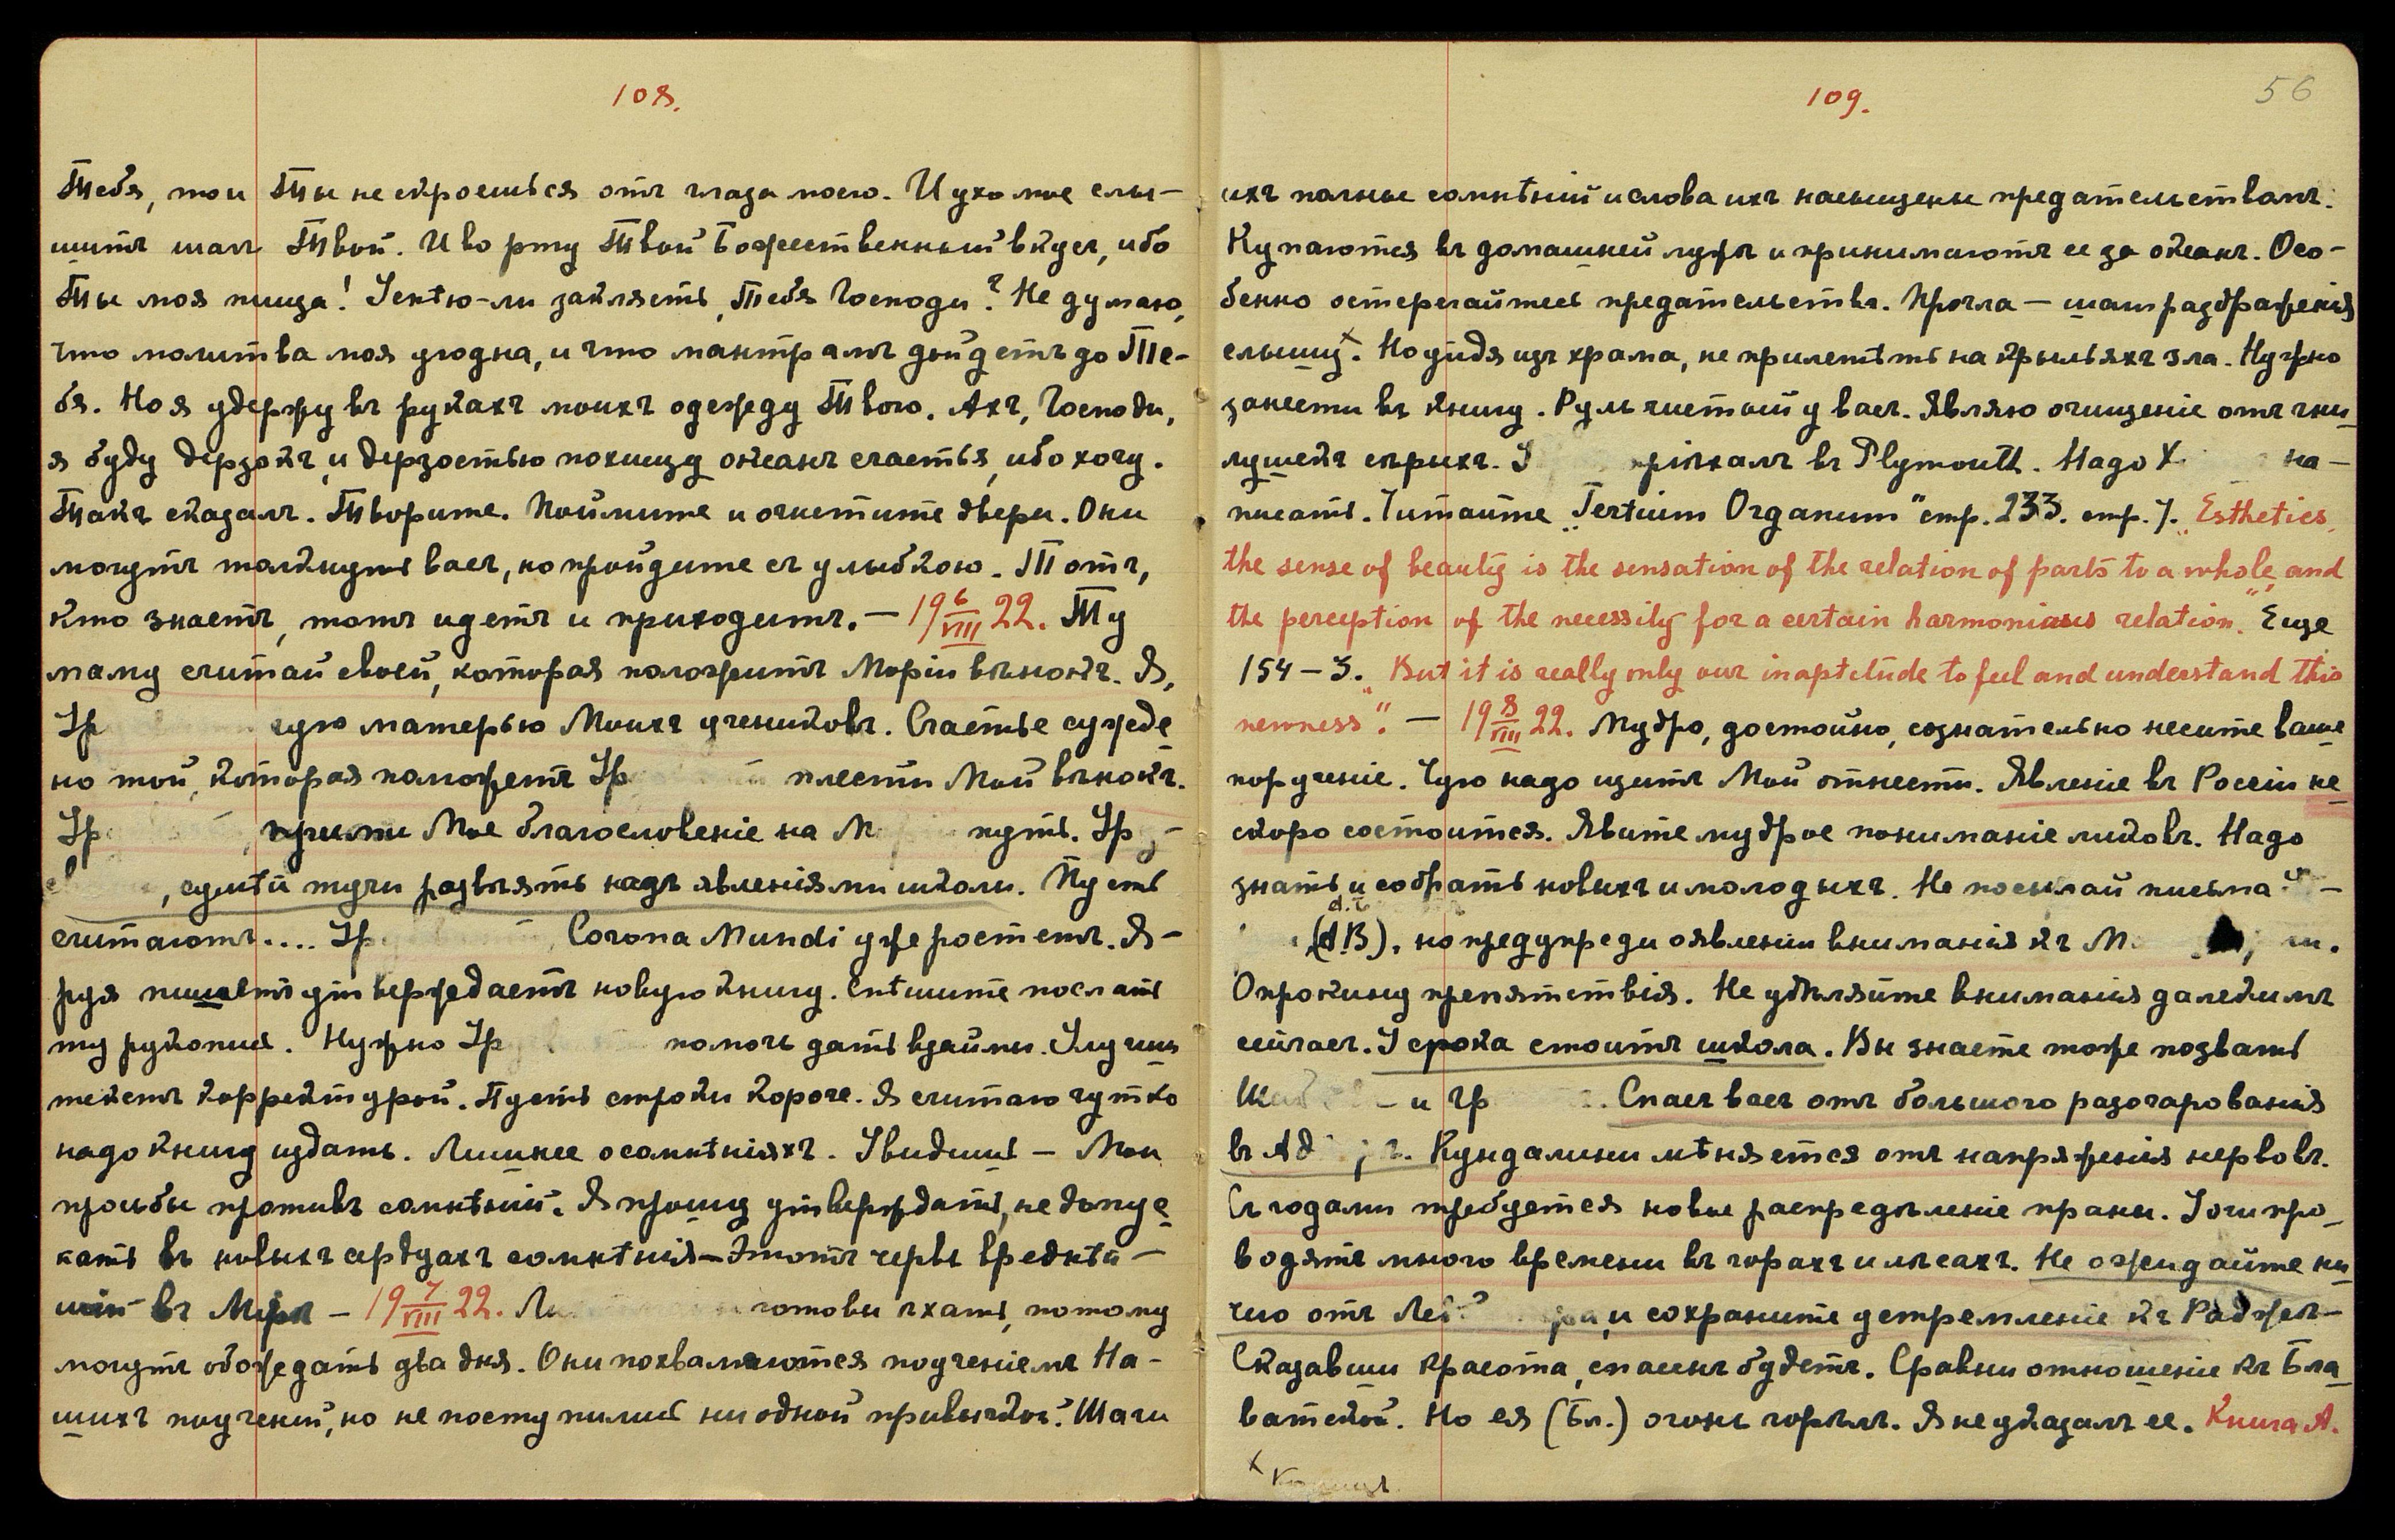 108.
Тебя, то и Ты не скроешься отъ глаза моего. И ухо мое слы-
шитъ шагъ Твой. И во рту Твой Божественный вкусъ, ибо
Ты моя пища! Успѣю-ли заклясть Тебя Господи? Не думаю,
что молитва моя угодна, и что мантрамъ дойдетъ до Те-
бя. Но я удержу въ рукахъ моихъ одежду Твою. Ахъ, Господи,
я буду дерзокъ и дерзостью похищу океанъ счастья, ибо хочу.
Такъ сказалъ. Творите. Поймите и очистите двери. Они
могутъ толкнуть васъ, но пройдите съ улыбкою. Тотъ,
кто знаетъ, тотъ идетъ и приходитъ. — 19 6/VIII 22. Ту
маму считай своей, которая положитъ Моріи вѣнокъ. Я,
Ур чую матерью Моихъ учениковъ. Счастье сужде
но той, которая поможетъ Ур плести Мой вѣнокъ.
Ур прими Мое благословеніе на М путь. Ур
, сумѣй тучи развѣять надъ явленіями школы. Пусть
считаютъ.... Ур Corona Mundi уже ростетъ. Я-
руя пишетъ утверждаетъ новую книгу. Спѣшите послать
ту рукопись. Нужно Ур помочь дать взаймы. Улучши
текстъ корректурой. Пусть строки короче. Я считаю чутко
надо книгу издать. Лишнее о сомнѣніяхъ. Увидишь — Мои
просьбы противъ сомнѣній. Я прошу утверждать, не допус
кать въ новыхъ сердцахъ сомнѣнія — Этотъ червь вреднѣй-
шій въ Мірѣ — 19 7/VIII 22. Ли готовы ѣхать, потому
могутъ обождать два дня. Они похваляются поученіемъ На-
шихъ поученій, но не поступились ни одной привычкой. Шаги
109.
56
ихъ полные сомнѣній и слова ихъ насыщены предательствомъ.
Купаются въ домашней лужѣ и принимаютъ ее за океанъ. Осо-
бенно остерегайтесь предательствъ. Прочла — шагъ раздраженія
слышу. Но уйдя изъ храма, не прилетѣть на крыльяхъ зла. Нужно
занести въ книгу. Руль чистый у васъ. Являю очищеніе отъ гни
лушекъ старыхъ. У пріѣхалъ въ Plymouth. Надо Х на-
писать. Читайте „Tertium Organum" стр. 233. стр. 7. „Esthetics,
the sense of beauty is the sensation of the relation of parts to a whole, and
the perception of the necessity for a certain harmonious relation." Еще
154 – 3. „But it is really only our inaptitude to feel and understand this
newness". — 19 8/VIII 22. Мудро, достойно, сознательно несите ваше
порученіе. Чую надо щитъ Мой отнести. Явленіе въ Россіи не
скоро состоится. Явите мудрое пониманіе ликовъ. Надо
знать и собрать новыхъ и молодыхъ. Не посылай письма
(АВ), но предупреди о явленіи вниманія къ М
Опрокину препятствія. Не удѣляйте вниманія далекимъ
сейчасъ. У срока стоитъ школа. Вы знаете тоже позвать
и Гр Спасъ васъ отъ большого разочарованія
въ Ад Кундалини мѣняется отъ напряженія нервовъ.
Съ годами требуется новое распредѣленіе праны. Йоги про
водятъ много времени въ горахъ и лѣсахъ. Не ожидайте ни
чего отъ Ле и сохраните устремленіе къ Раджѣ —
Сказавши красота, спасенъ будетъ. Сравни отношеніе къ Бла
ватской. Но ея (Бл.) огонь горѣлъ. Я не указалъ ее. Книга А.